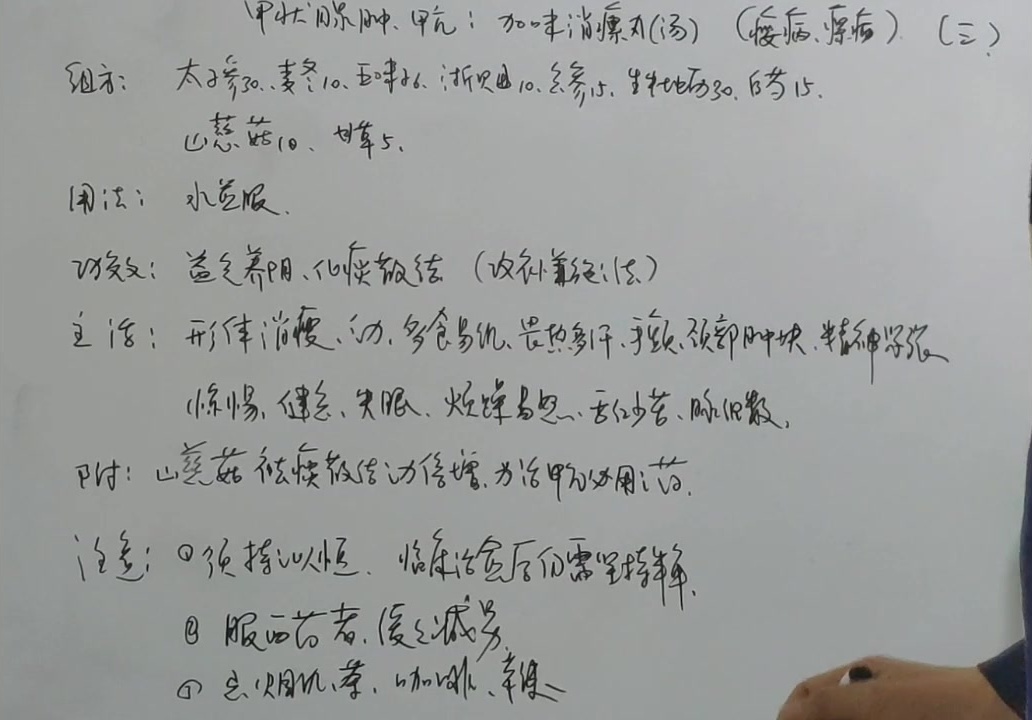 甲状腺肿、甲亢：加味消瘰丸(汤) (瘿病、瘰病) (三)
组方: 太子参30、麦冬10、五味子6、浙贝母10、玄参15、生牡蛎30、白芍15.
山慈菇10、甘草5.
用法: 水煎服.
功效: 益气养阴、化痰散结
主治: 形体消瘦、多食易饥、畏热多汗、手颤、颈部肿块、精神紧张
惊惕、健忘、失眠、烦躁易怒、舌红少苔、脉细数.
附: 山慈菇祛痰散结功倍增.为治甲亢必用之药.
注意: ①须持之以恒、临床治愈后仍需坚持半年.
② 服西药者、缓之减量.
③ 忌烟酒、茶、咖啡、辛